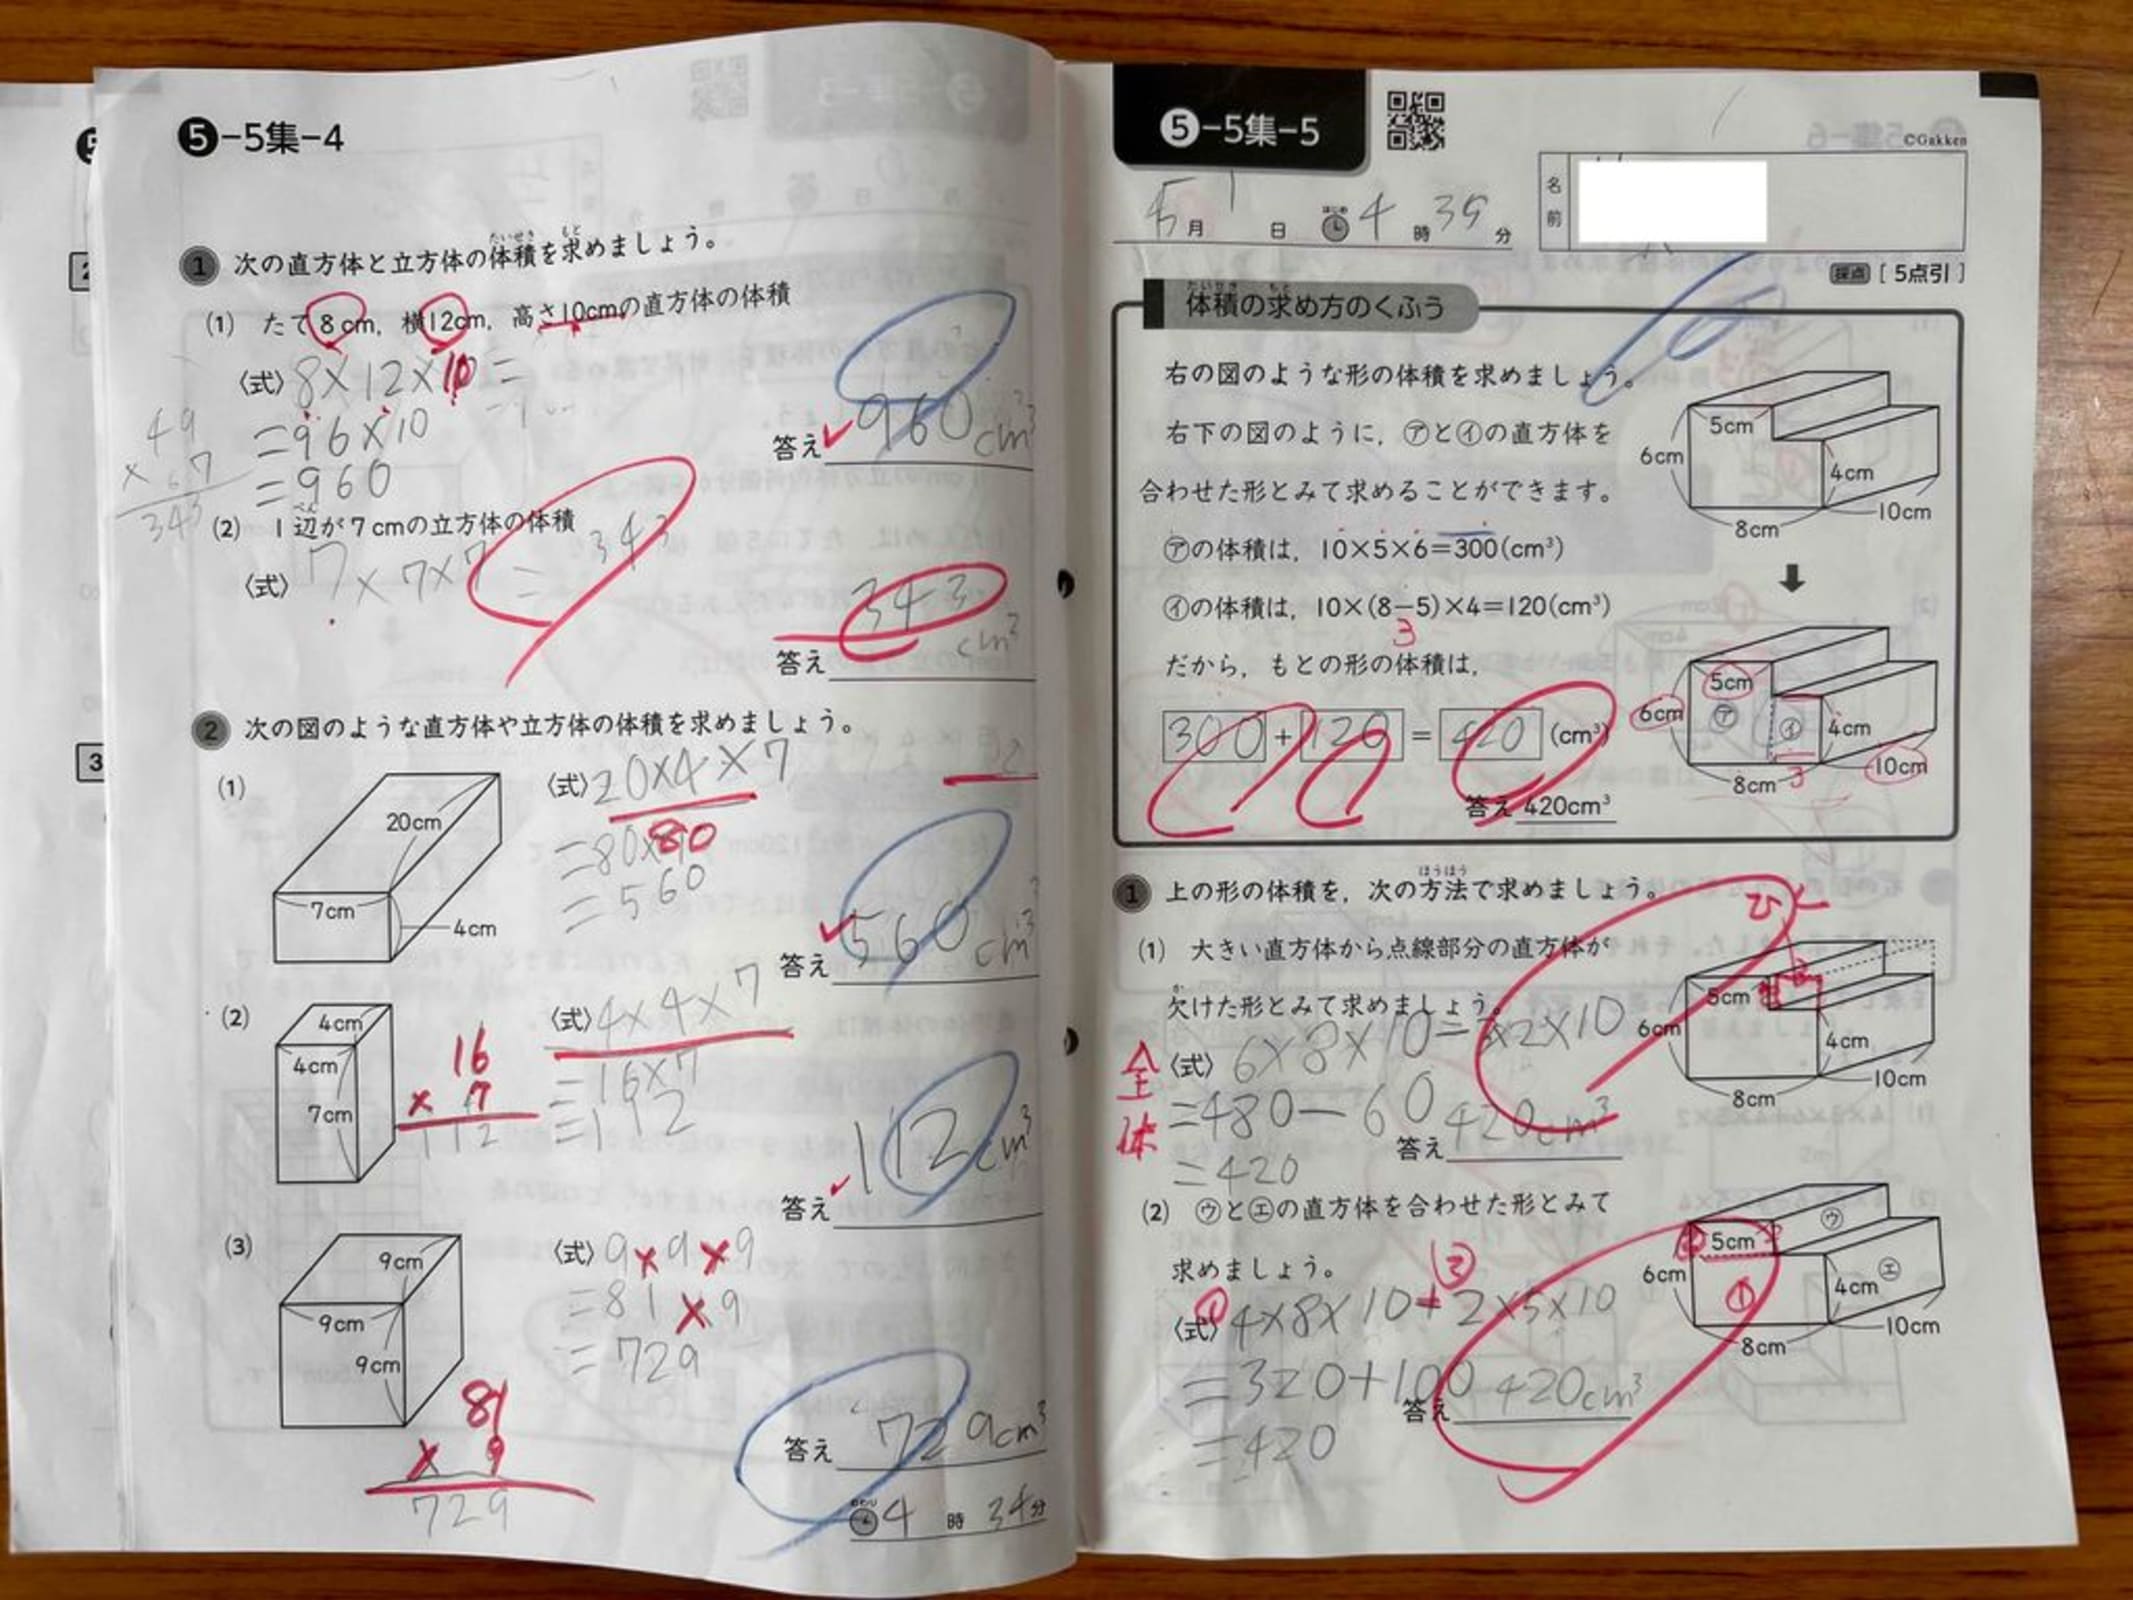 5-5集-4
1 次の直方体と立方体の体積を求めましょう。
たいせき もと
(1) たて8cm, 横12cm, 高さ10cmの直方体の体積
〈式〉8×12×10=
=96×10
=960
答え 960cm³
49
× 67
343
(2) 1辺が7cmの立方体の体積
へん
〈式〉7×7×7=343
答え 343cm³
2 次の図のような直方体や立方体の体積を求めましょう。
(1)
20cm
7cm
4cm
〈式〉20×4×7
80
=560
答え 560cm³
(2)
4cm
4cm
7cm
16
× 7
112
〈式〉4×4×7
=16×7
=112
答え 112cm³
(3)
9cm
9cm
9cm
81
× 9
729
〈式〉9×9×9
=81×9
=729
答え 729cm³
おわり
4時34分
5-5集-5
©Gakken
5月1日 はじめ 4時39分
名前
採点 [5点引]
体積の求め方のくふう
たいせき もと
右の図のような形の体積を求めましょう。
右下の図のように，㋐と㋑の直方体を
合わせた形とみて求めることができます。
㋐の体積は，10×5×6=300(cm³)
㋑の体積は，10×(8−5)×4=120(cm³)
3
だから，もとの形の体積は，
300+120=420(cm³)
答え 420cm³
5cm
6cm
4cm
8cm
10cm
5cm
6cm
㋐
㋑
4cm
8cm
3
10cm
1 上の形の体積を，次の方法で求めましょう。
ほうほう
(1) 大きい直方体から点線部分の直方体が
欠けた形とみて求めましょう。
か
全体
〈式〉6×8×10−3×2×10
=480−60
=420
答え 420cm³
ひく
5cm
6cm
4cm
8cm
10cm
(2) ㋒と㋓の直方体を合わせた形とみて
求めましょう。
① ②
〈式〉4×8×10+2×5×10
=320+100
=420
答え 420cm³
㋒
5cm
6cm
①
4cm
㋓
8cm
10cm